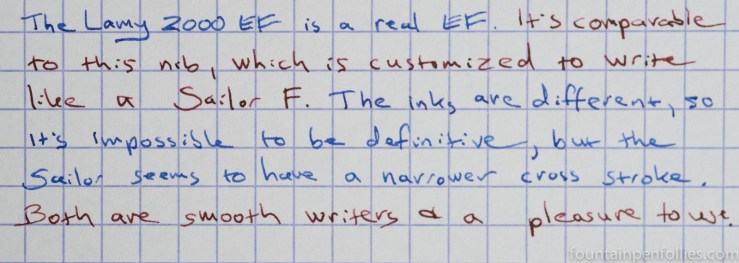 The Lamy 2000 EF is a real EF. It's comparable
to this nib, which is customized to write
like a Sailor F. The inks are different, so
it's impossible to be definitive, but the
Sailor seems to have a narrower cross stroke.
Both are smooth writers & a pleasure to use.
fountainpenfollies.com